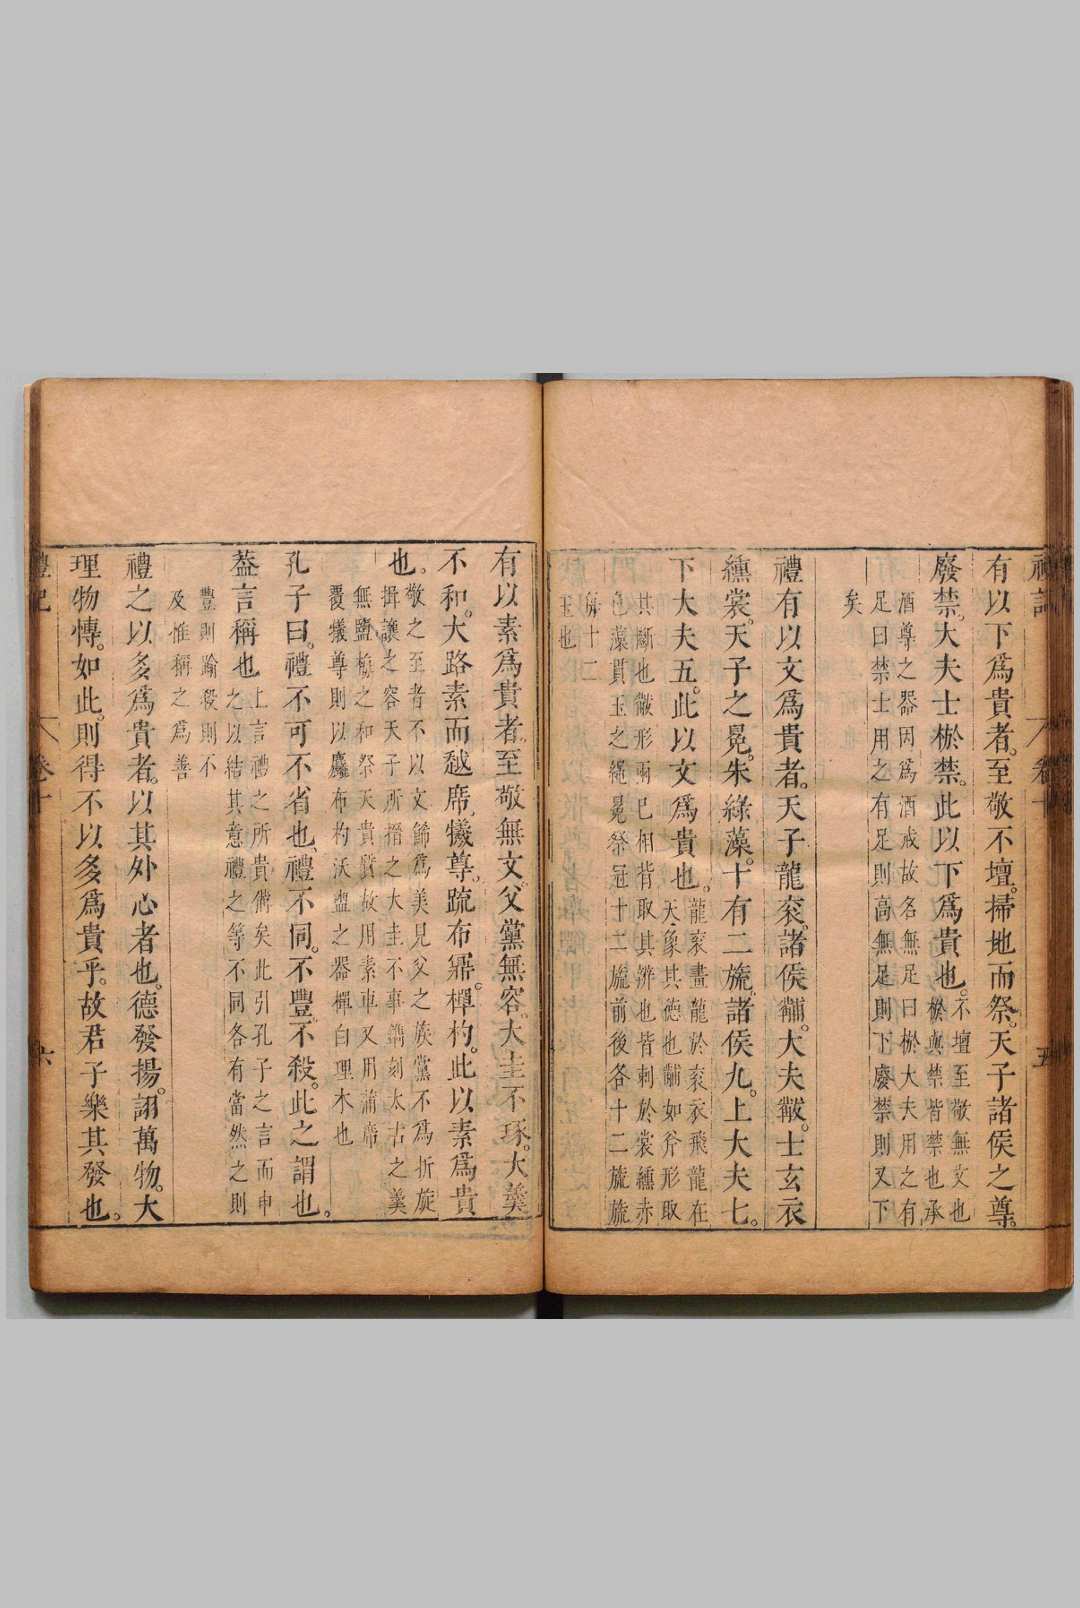 禮記 卷十 五
有以下爲貴者。至敬不壇。掃地而祭。天子諸侯之尊。
廢禁。大夫士棜禁。此以下爲貴也。不壇至敬無文也
棜與禁皆禁也承
酒尊之器因爲酒戒故名無足曰棜大夫用之有
足曰禁士用之有足則高無足則下廢禁則又下
矣
禮有以文爲貴者。天子龍衮。諸侯黼。大夫黻。士玄衣
纁裳。天子之冕。朱綠藻。十有二旒。諸侯九。上大夫七。
下大夫五。此以文爲貴也。龍衮畫龍於衮衣飛龍在
天象其德也黼如斧形取
其斷也黻形兩巳相背取其辨也皆刺於裳纁赤
色藻貫玉之繩冕祭冠十二旒前後各十二旒旒
十二
玉也
有以素爲貴者。至敬無文。父黨無容。大圭不琢。大羹
不和。大路素而越席。犧尊。疏布鼏。樿杓。此以素爲貴
也。敬之至者不以文飾爲美見父之族黨不爲折旋
揖讓之容天子所搢之大圭不事鐫刻太古之羹
無鹽梅之和祭天貴質故用素車又用蒲席
覆犧尊則以麤布杓沃盥之器樿白理木也
孔子曰。禮不可不省也。禮不同。不豐。不殺。此之謂也。
蓋言稱也上言禮之所貴備矣此引孔子之言而申
之以結其意禮之等不同各有當然之則
豐則踰殺則不
及惟稱之爲善
禮之以多爲貴者。以其外心者也。德發揚。詡萬物。大
理物博。如此。則得不以多爲貴乎。故君子樂其發也。
禮記 卷十 六